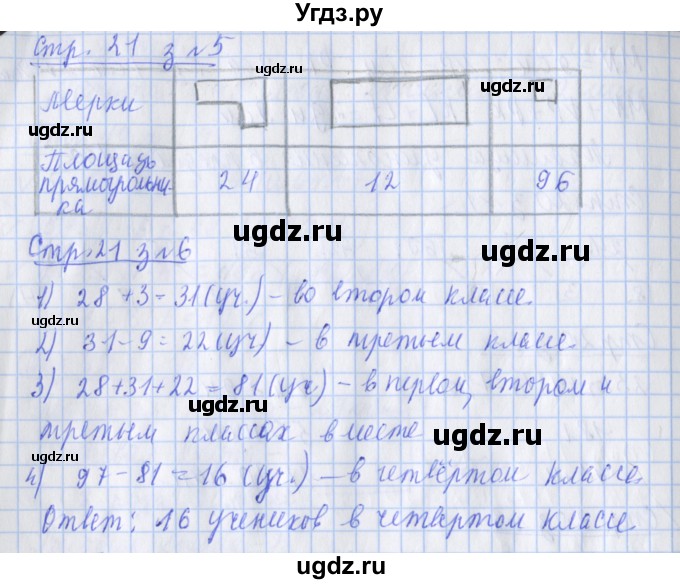 Угдз.ру
Стр. 21 з №5
ugdz.ru ugdz.ru
Мерки
ugdz.ru
Площадь прямоугольни-ка 24 12 96
ugdz.ru
Стр. 21 з №6
ugdz.ru
1) 28 + 3 = 31 (уч.) – во втором классе.
ugdz.ru
2) 31 – 9 = 22 (уч) – в третьем классе.
3) 28 + 31 + 22 = 81 (уч) – в первом, втором и
ugdz.ru
третьем классах вместе
ugdz.ru
4) 97 – 81 = 16 (уч.) – в четвёртом классе.
ugdz.ru
Ответ: 16 учеников в четвёртом классе
ugdz.ru